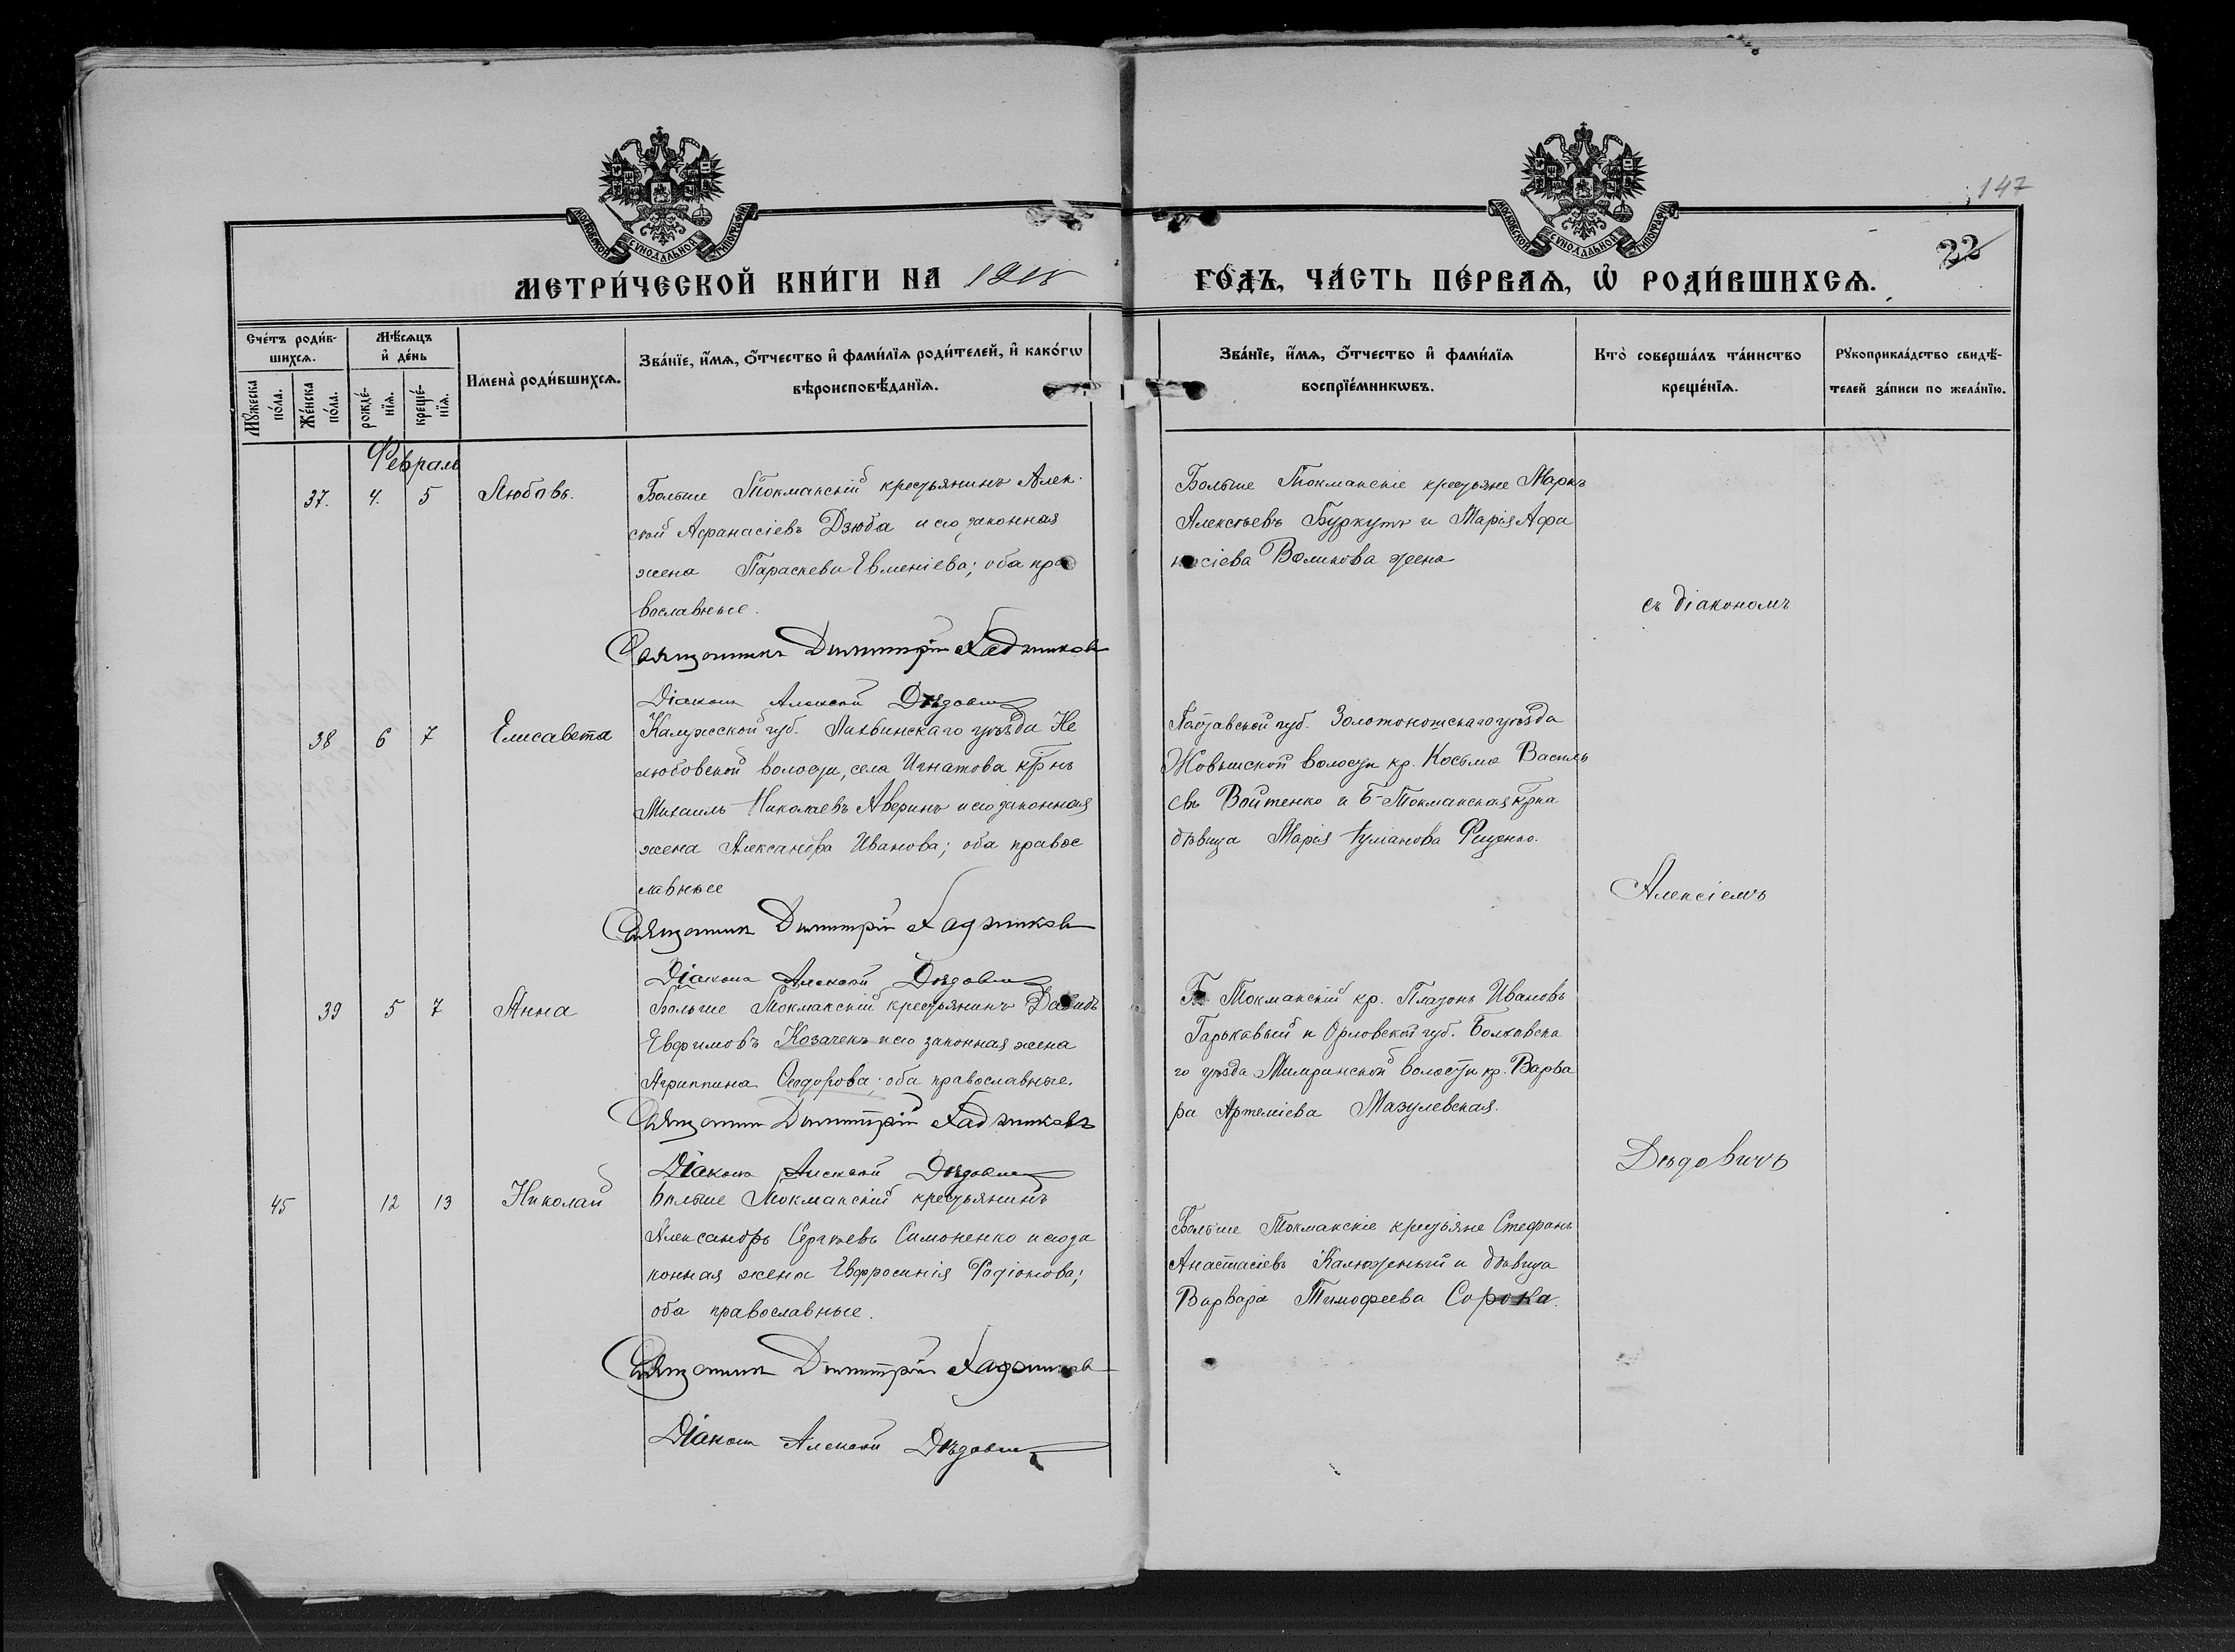 147
22
МОСКОВСКОЙ СУНОДАЛЬНОЙ ТИПОГРАФІИ
МОСКОВСКОЙ СУНОДАЛЬНОЙ ТИПОГРАФІИ
МЕТРИ́ЧЕСКОЙ КНИ́ГИ НА
ГО́ДЪ, ЧА́СТЬ ПЕ́РВАѦ, Ѡ҆ РОДИ́ВШИХСѦ.
Сче́тъ роди́в-
шихсѧ.
Мꙋ́жеска
по́ла.
Же́нска
по́ла.
Мѣ́сѧцъ
и҆ де́нь
рожде́-
нїѧ.
креще́-
нїѧ.
Имена̀ роди́вшихсѧ.
Зва́нїе, и҆́мѧ, ѻ҆́тчество и҆ фами́лїѧ роди́телей, и҆ како́гѡ
вѣроисповѣ́данїѧ.
Зва́нїе, и҆́мѧ, ѻ҆́тчество и҆ фами́лїѧ
воспрїе́мникѡвъ.
Кто̀ соверша́лъ та́инство
креще́нїѧ.
Рꙋкоприкла́дство свидѣ́-
телей за́писи по жела́нїю.
Февраль
37. 4. 5 Любовь.
Больше Токмакскій крестьянинъ Алек-
сѣй Афанасіевъ Дзюба и его законная
жена Параскева Евменіева; оба пра
вославные.
Священникъ Димитрій Хаджиновъ
Діаконъ Алексѣй Дѣдовичъ
Больше Токмакскіе крестьяне Маркъ
Алексѣевъ Буркутъ и Марія Афа
насіева Воликова жена
съ діакономъ
38 6 7 Елисавета
Калужской губ. Лихвинскаго уѣзда Не
любовской волости, села Игнатова кр-нъ
Михаилъ Николаевъ Аверинъ и его законная
жена Александра Иванова; оба правос
лавные
Священникъ Димитрій Хаджиновъ
Діаконъ Алексѣй Дѣдовичъ
Полтавской губ. Золотоношскаго уѣзда
волости кр. Косьма Василь
евъ Войтенко и Б-Токмакская кр-ка
дѣвица Марія
Алексіемъ
39 5 7 Анна
Больше Токмакскій крестьянинъ Давидъ
Евфимовъ Козаченъ и его законная жена
Агриппина Ѳеодорова; оба православные.
Священникъ Димитрій Хаджиновъ
Діаконъ Алексѣй Дѣдовичъ
Б. Токмакскій кр. Платонъ Ивановъ
Гарькавый и Орловской губ. Болховска
го уѣзда волости кр. Варва
ра Артеміева Мазулевская.
Дѣдовичъ
45 12 13 Николай
Больше Токмакскій крестьянинъ
Александръ Сергѣевъ Симоненко и его за
конная жена Евфросинія Родіонова;
оба православные.
Священникъ Димитрій Хаджиновъ
Діаконъ Алексѣй Дѣдовичъ
Больше Токмакскіе крестьяне Стефанъ
Анастасіевъ Калюжный и дѣвица
Варвара Тимофеева Сорока.